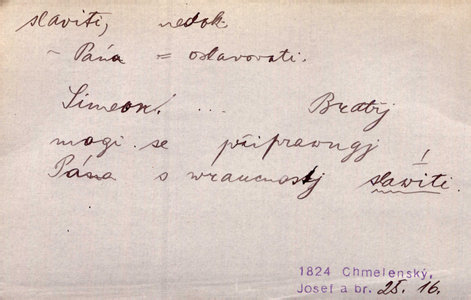 slaviti, nedok
~ Pána = oslavovati.
Simeon: ... Bratřj
mogi se připrawugj
Pána s wraucnostj slawiti.
1824 Chmelenský,
Josef a br. 25. 16.